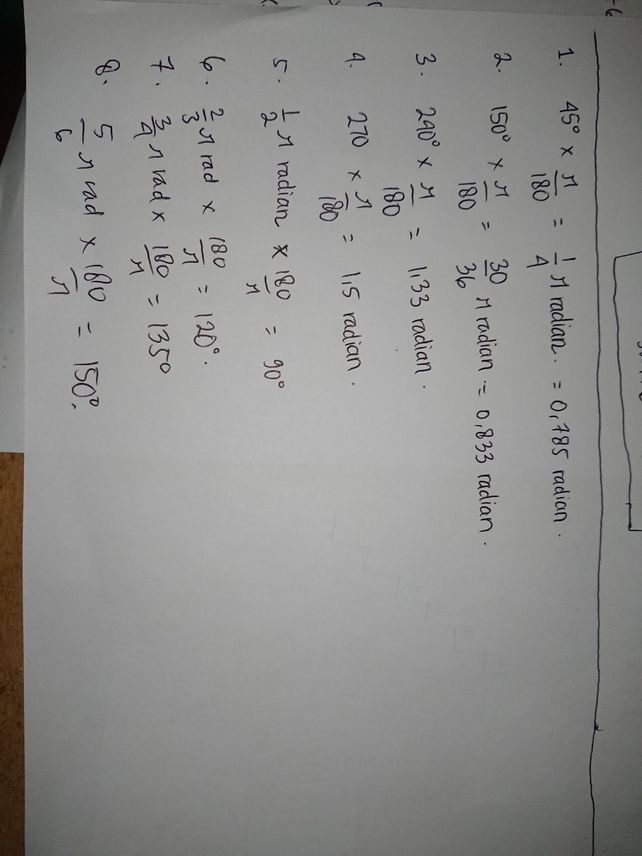 1. 45° × π/180 = 1/4 π radian. = 0,785 radian.
2. 150° × π/180 = 30/36 π radian = 0,833 radian.
3. 240° × π/180 = 1.33 radian.
4. 270 × π/180 = 1,5 radian.
5. 1/2 π radian × 180/π = 90°
6. 2/3 π rad × 180/π = 120°.
7. 3/4 π rad × 180/π = 135°
8. 5/6 π rad × 180/π = 150°.